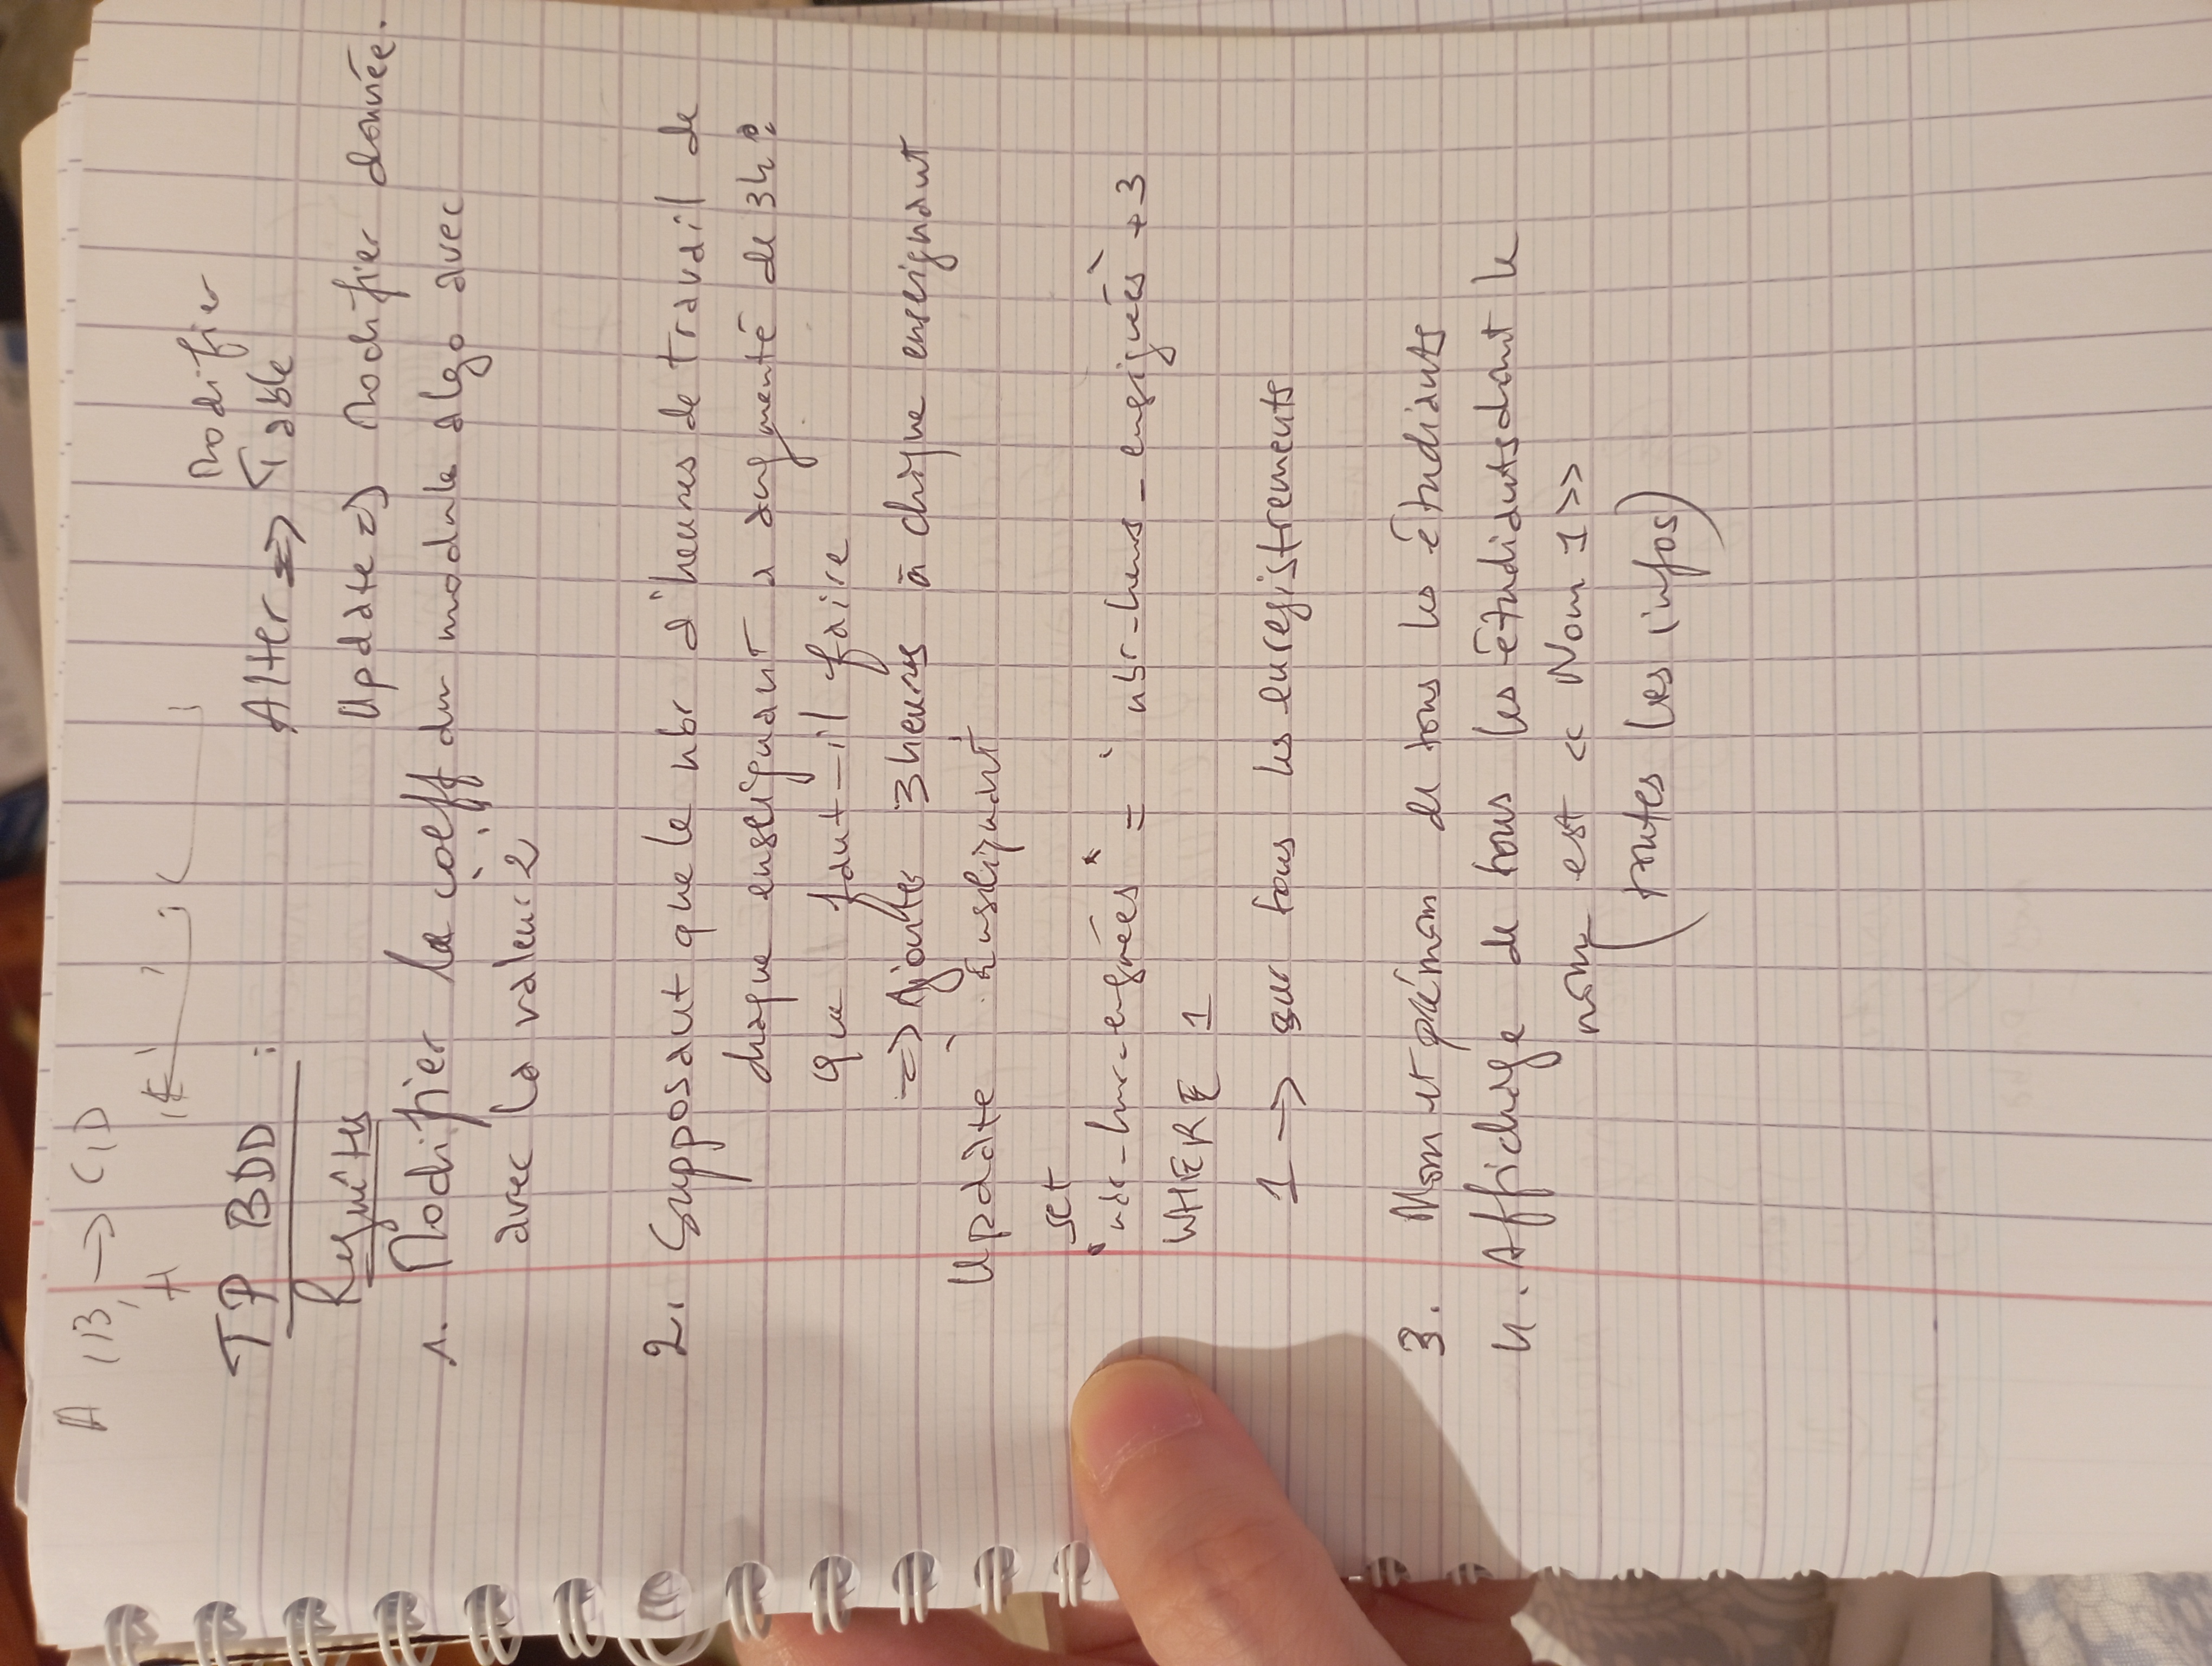 A , B, → C, D
TP BDD :
Modifier
Alter => Table
Requêtes
Update => Modifier donnée.
1. Modifier le coeff du module algo avec
avec la valeur 2
2. Supposant que le nbr d'heures de travail de
chaque enseignant a augmenté de 3h ?
Que faut-il faire
=> Ajouter 3 heures à chaque enseignant
Update Enseignant
set
= +3
WHERE 1
1 → sur tous les enregistrements
3. Nom et prénom de tous les étudiants
4. Affichage de tous les étudiants dont le
nom est << Nom 1 >>
(toutes les infos)